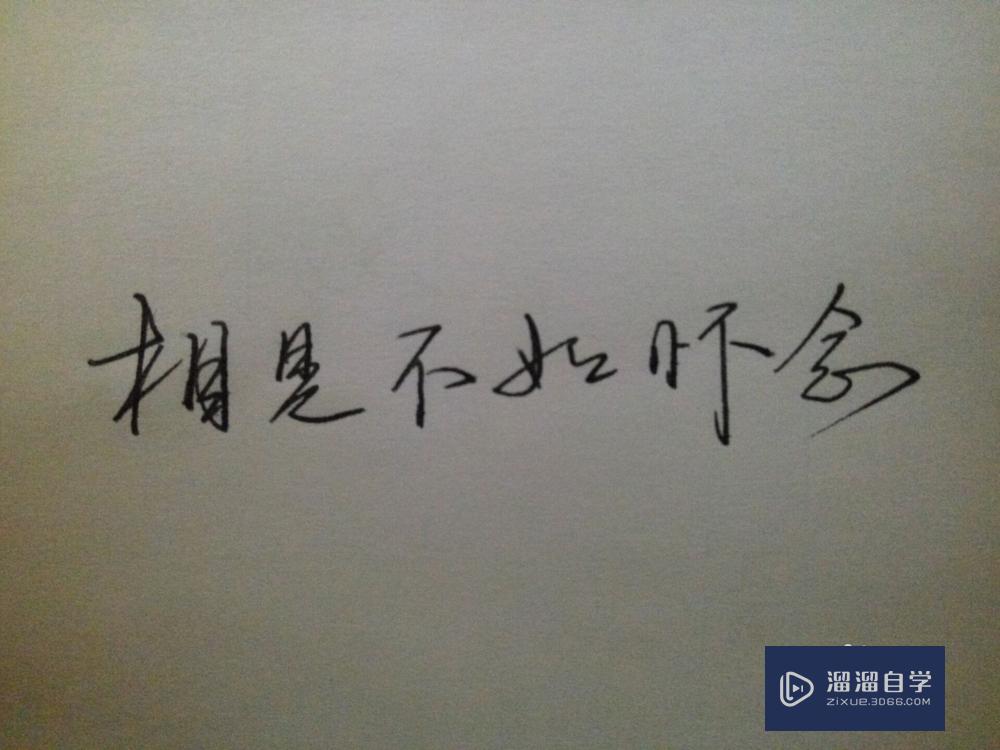 相見不如怀念
溜溜自学
ZIXUE.3D66.COM